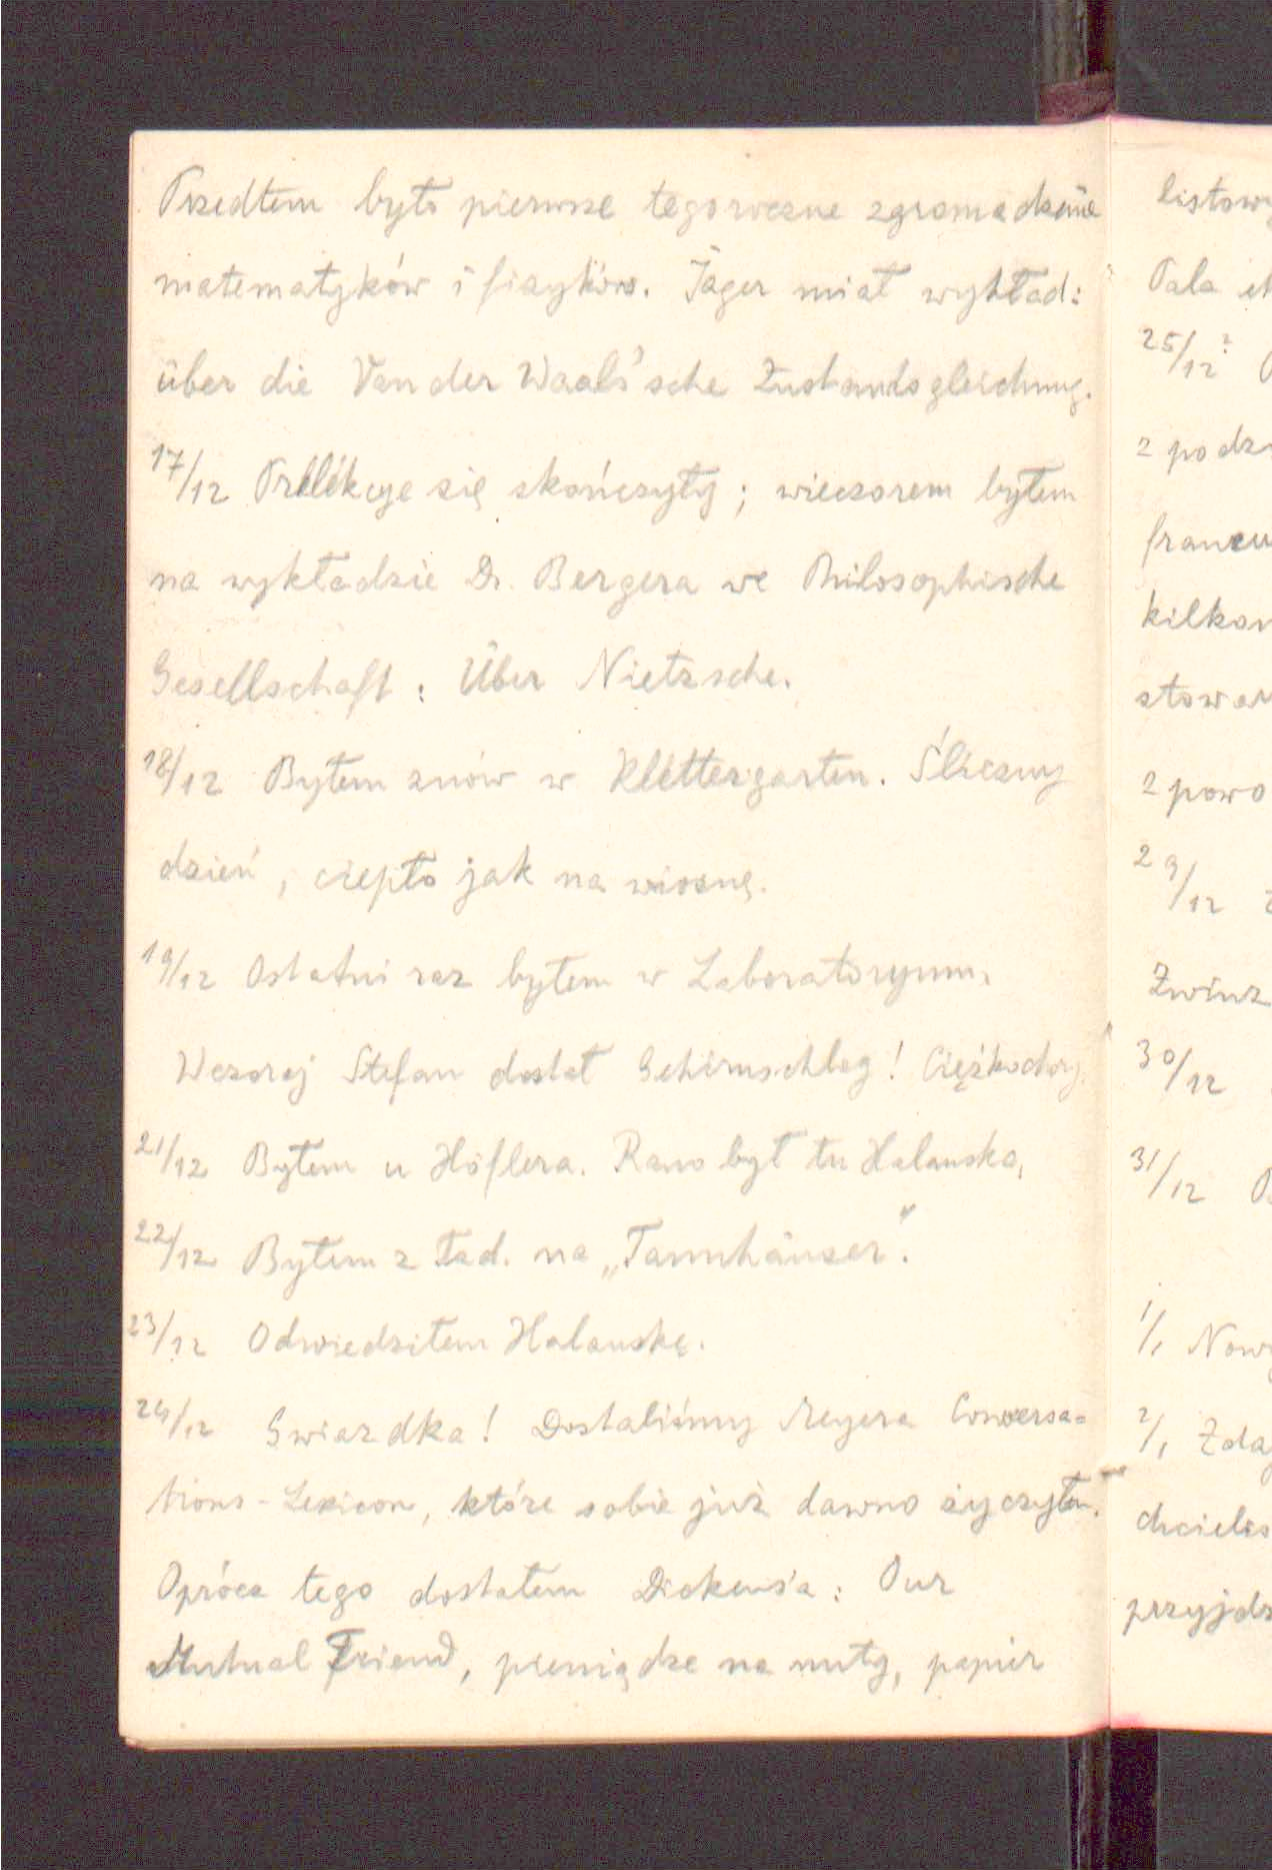 Przedtem było pierwsze tegoroczne zgromadzenie
matematyków i fizyków. Jäger miał wykład:
über die Van der Waals'sche Zustandsgleichung.
17/12 Prelekcye się skończyły; wieczorem byłem
na wykładzie Dr. Bergera we Philosophische
Gesellschaft: Über Nietzsche.
18/12 Byłem znów w Klettergarten. Śliczny
dzień, ciepło jak na wiosnę.
19/12 Ostatni raz byłem w Laboratoryum.
Wczoraj Stefan dostał Gehirnschlag! Ciężko chory.
21/12 Byłem u Höflera. Rano był tu Halauska,
22/12 Byłem z Tad. na „Tannhäuser".
23/12 Odwiedziłem Halauskę.
24/12 Gwiazdka! Dostaliśmy Meyera Conversa=
tions-Lexicon, które sobie już dawno życzyłem.
Oprócz tego dostałem Dickens'a: Our
Mutual Friend, pieniądze na nuty, papier
listowy
25/12
2
kilkon
2 powo
29/12
30/12
31/12
1/1 Nowy
2/1